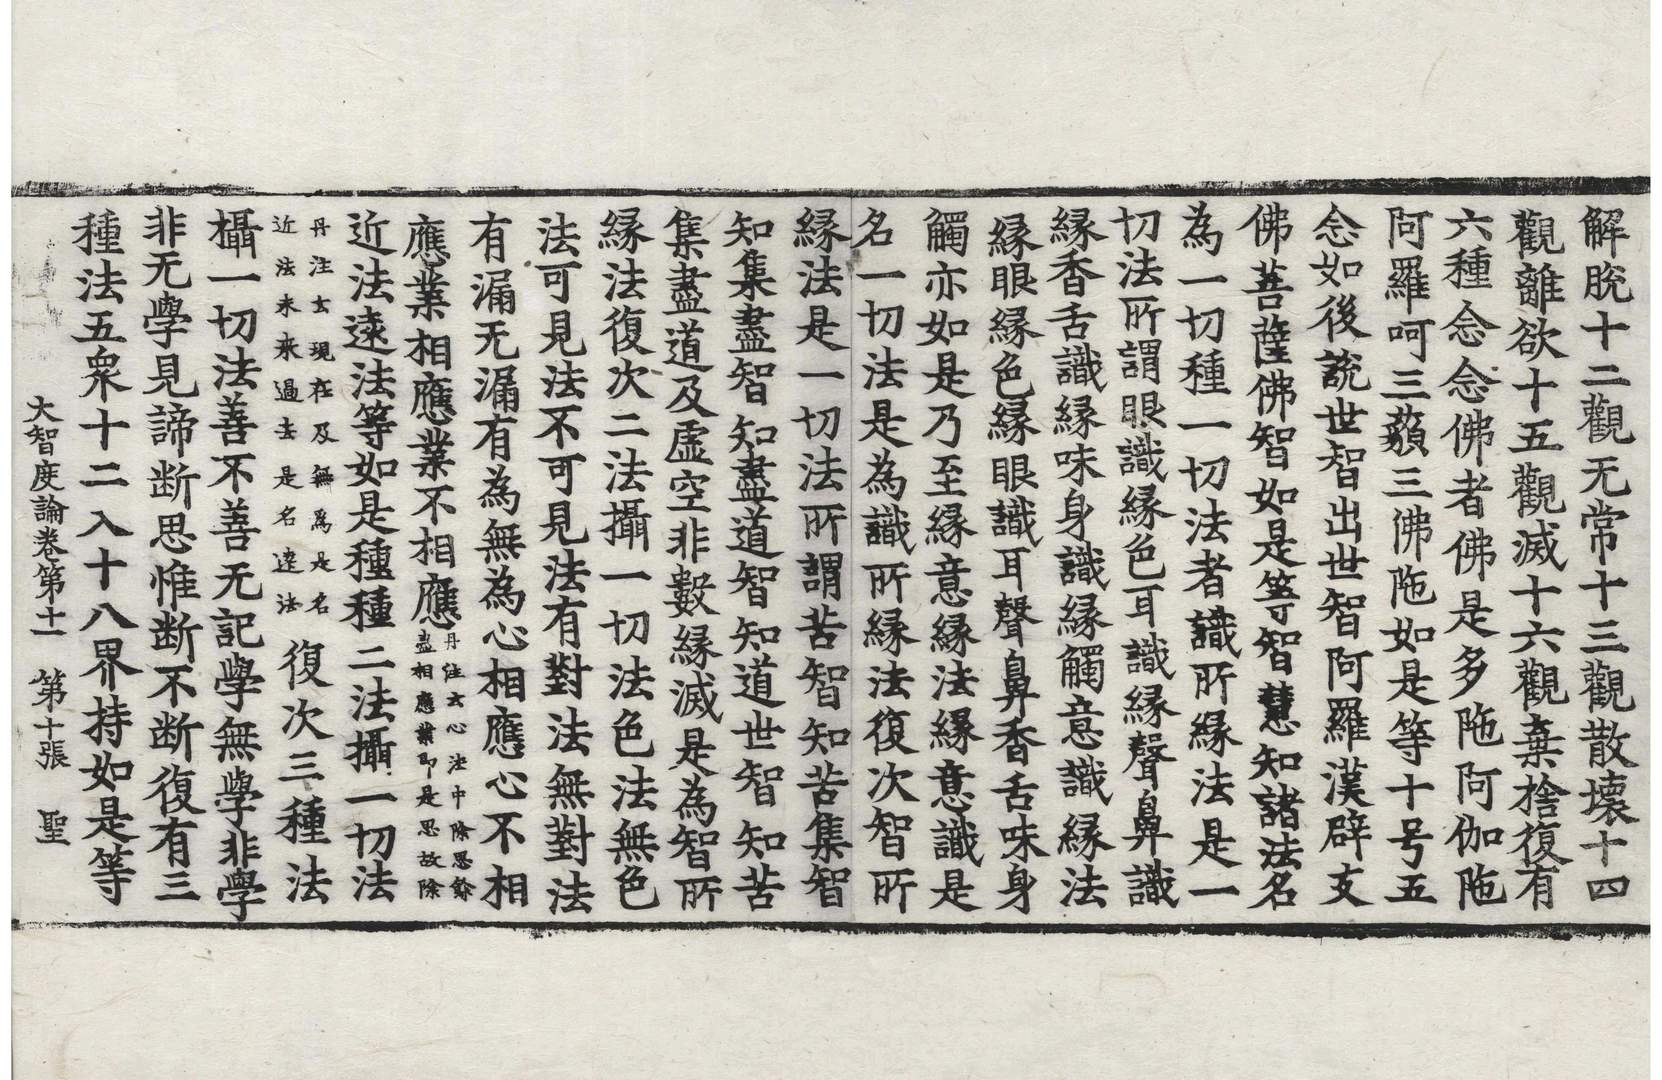 解脫十二觀无常十三觀散壞十四
觀離欲十五觀滅十六觀棄捨復有
六種念念佛者佛是多陁阿伽陁
阿羅呵三藐三佛陁如是等十号五
念如後說世智出世智阿羅漢辟支
佛菩薩佛智如是等智慧知諸法名
為一切種一切法者識所緣法是一
切法所謂眼識緣色耳識緣聲鼻識
緣香舌識緣味身識緣觸意識緣法
緣眼緣色緣眼識耳聲鼻香舌味身
觸亦如是乃至緣意緣法緣意識是
名一切法是為識所緣法復次智所
緣法是一切法所謂苦智知苦集智
知集盡智知盡道智知道世智知苦
集盡道及虛空非數緣滅是為智所
緣法復次二法攝一切法色法無色
法可見法不可見法有對法無對法
有漏无漏有為無為心相應心不相
應業相應業不相應丹注云心法中除思餘盡相應業即是思故除
近法遠法等如是種種二法攝一切法
丹注云現在及無為是名近法未來過去是名遠法復次三種法
攝一切法善不善无記學無學非學
非无學見諦断思惟断不断復有三
種法五眾十二入十八界持如是等
大智度論卷第十一 第十張 聖